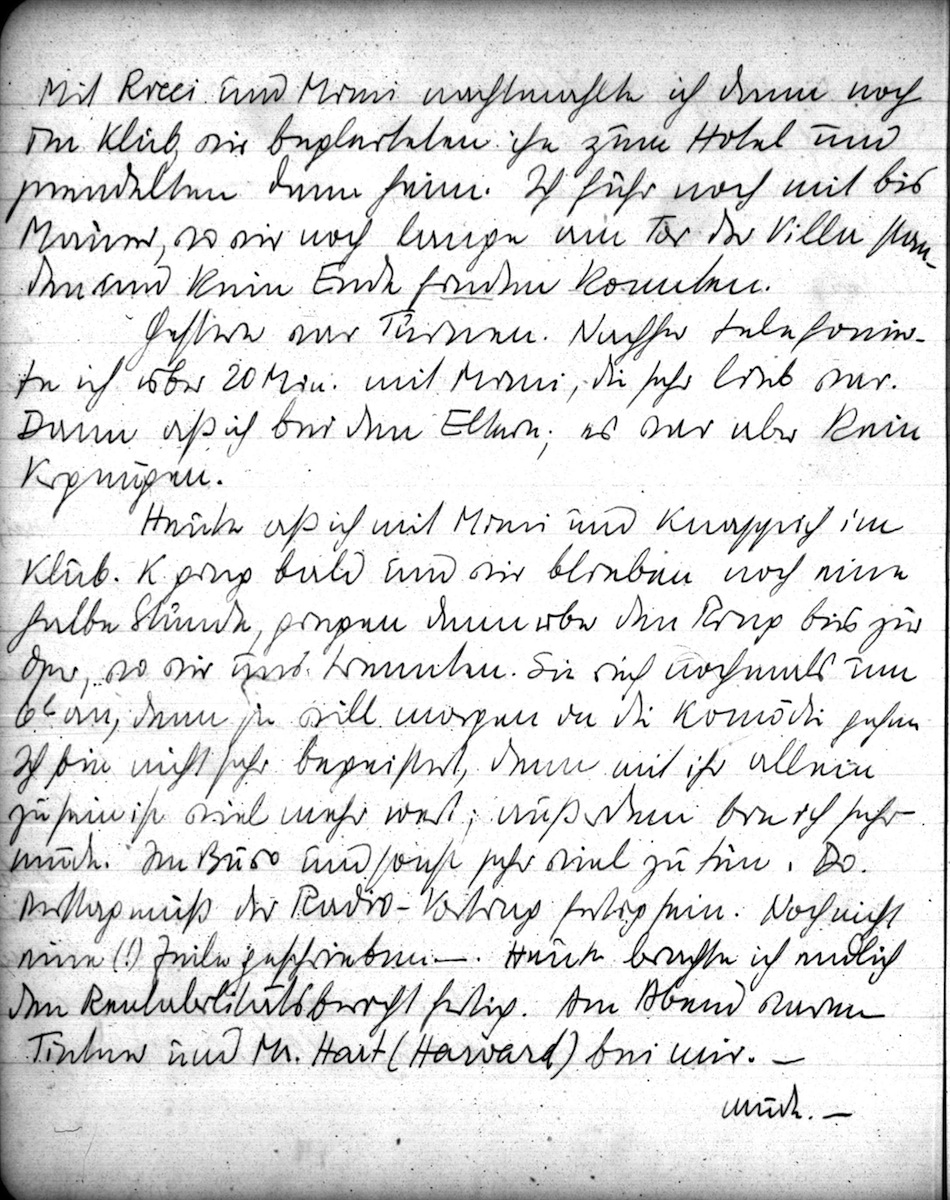 Mit Ricci und Mimi nachtmahlte ich dann noch
im Klub, wir begleiteten ihn zum Hotel und
pendelten dann heim. Ich fuhr noch mit bis
Mauer, wo wir noch lange am Tor der Villa stan-
den und kein Ende finden konnten.
Gestern war Turnen. Nachher telefonier-
te ich über 20 Min. mit Mimi, die sehr lieb war.
Dann aß ich bei den Eltern; es war aber kein
Vergnügen.
Heute aß ich mit Mimi und Knappich im
Klub. K ging bald und wir blieben noch eine
halbe Stunde, gingen dann über den Ring bis zur
Oper, wo wir uns trennten. Sie rief nochmals um
6h an, denn sie will morgen in die Komödie gehen
Ich bin nicht sehr begeistert, denn mit ihr allein
zu sein ist viel mehr wert; außerdem bin ich sehr
müde. Im Büro und sonst sehr viel zu tun. Do.
Mittag muß der Radio-Vortrag fertig sein. Noch nicht
eine (!) Zeile geschrieben —. Heute brachte ich endlich
den Rentabilitätsbericht fertig. Am Abend waren
Tintner und Mr. Hart (Harvard) bei mir. —
müde. —